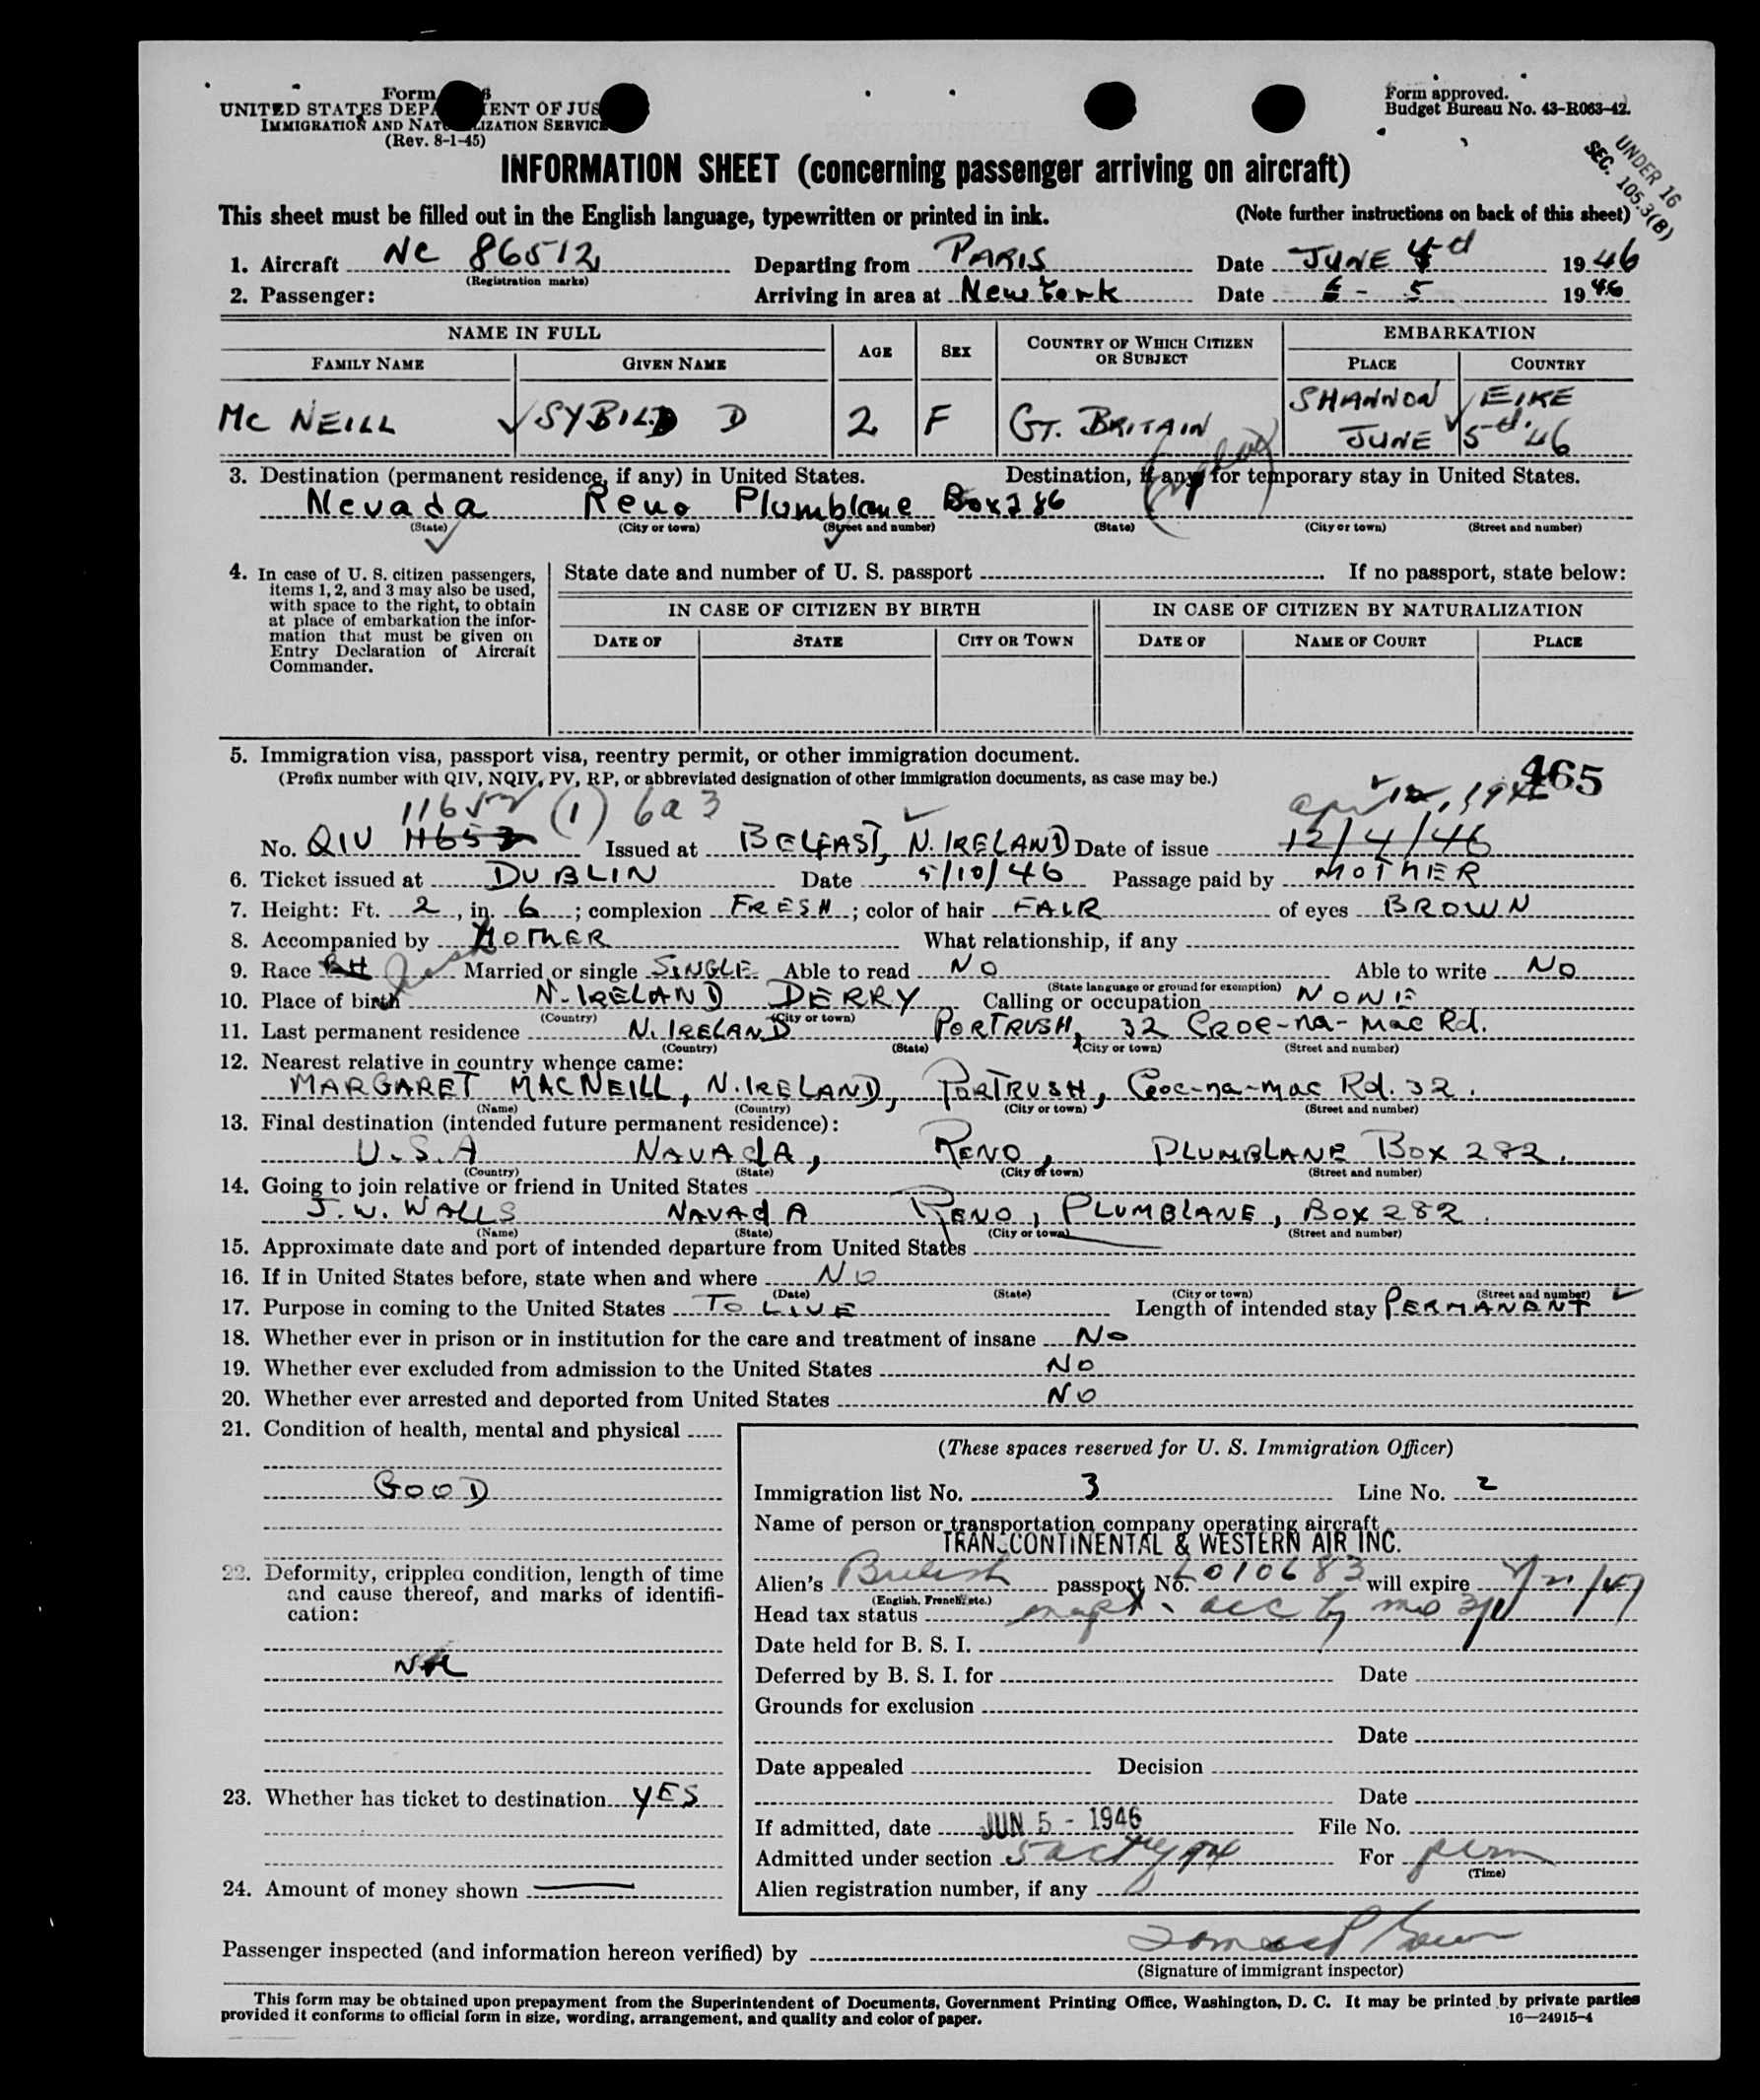 Form
UNITED STATES DEPA ENT OF JUS
IMMIGRATION AND NAT IZATION SERVICE
(Rev. 8-1-45)
Form approved.
Budget Bureau No. 43-R063-42.
UNDER 16
SEC. 105.3(B)
INFORMATION SHEET (concerning passenger arriving on aircraft)
This sheet must be filled out in the English language, typewritten or printed in ink. (Note further instructions on back of this sheet)
1. Aircraft NC 86512 Departing from PARIS Date JUNE 4d 1946
(Registration marks)
2. Passenger: Arriving in area at New York Date 6 - 5 1946
NAME IN FULL AGE SEX COUNTRY OF WHICH CITIZEN OR SUBJECT EMBARKATION
FAMILY NAME GIVEN NAME PLACE COUNTRY
MC NEILL SYBIL D 2 F GT. BRITAIN SHANNON EIRE
JUNE 5th 46
3. Destination (permanent residence, if any) in United States. Destination, if any, for temporary stay in United States.
Nevada Reno Plumblane Box 286
(State) (City or town) (Street and number) (State) (City or town) (Street and number)
4. In case of U. S. citizen passengers, items 1, 2, and 3 may also be used, with space to the right, to obtain at place of embarkation the information that must be given on Entry Declaration of Aircraft Commander.
State date and number of U. S. passport If no passport, state below:
IN CASE OF CITIZEN BY BIRTH IN CASE OF CITIZEN BY NATURALIZATION
DATE OF STATE CITY OR TOWN DATE OF NAME OF COURT PLACE
5. Immigration visa, passport visa, reentry permit, or other immigration document.
(Prefix number with QIV, NQIV, PV, RP, or abbreviated designation of other immigration documents, as case may be.)
465
(1) 6a3
No. QIV 11653 Issued at BELFAST, N. IRELAND Date of issue 12/4/46
6. Ticket issued at DUBLIN Date 5/10/46 Passage paid by MOTHER
7. Height: Ft. 2, in. 6; complexion FRESH; color of hair FAIR of eyes BROWN
8. Accompanied by MOTHER What relationship, if any
9. Race Irish Married or single SINGLE Able to read NO Able to write NO
(State language or ground for exemption)
10. Place of birth N. IRELAND DERRY Calling or occupation NONE
(Country) (City or town)
11. Last permanent residence N. IRELAND PORTRUSH, 32 CROC-na-mac Rd.
(Country) (State) (City or town) (Street and number)
12. Nearest relative in country whence came:
MARGARET MACNEILL, N. IRELAND, PORTRUSH, Croc-na-mac Rd. 32.
(Name) (Country) (City or town) (Street and number)
13. Final destination (intended future permanent residence):
U.S.A NAVADA, RENO, PLUMBLANE BOX 282.
(Country) (State) (City or town) (Street and number)
14. Going to join relative or friend in United States
J. W. WALLS NAVADA RENO, PLUMBLANE, BOX 282.
(Name) (State) (City or town) (Street and number)
15. Approximate date and port of intended departure from United States
16. If in United States before, state when and where NO
(Date) (State) (City or town) (Street and number)
17. Purpose in coming to the United States TO LIVE Length of intended stay PERMANANT
18. Whether ever in prison or in institution for the care and treatment of insane NO
19. Whether ever excluded from admission to the United States NO
20. Whether ever arrested and deported from United States NO
21. Condition of health, mental and physical
GOOD
22. Deformity, crippled condition, length of time and cause thereof, and marks of identification:
NIL
23. Whether has ticket to destination YES
24. Amount of money shown
(These spaces reserved for U. S. Immigration Officer)
Immigration list No. 3 Line No. 2
Name of person or transportation company operating aircraft
TRANSCONTINENTAL & WESTERN AIR INC.
Alien's British passport No. L010683 will expire
(English, French, etc.)
Head tax status exempt acc by mo
Date held for B. S. I.
Deferred by B. S. I. for Date
Grounds for exclusion
Date
Date appealed Decision
Date
If admitted, date JUN 5 - 1946 File No.
Admitted under section For perm
(Time)
Alien registration number, if any
Passenger inspected (and information hereon verified) by
(Signature of immigrant inspector)
This form may be obtained upon prepayment from the Superintendent of Documents, Government Printing Office, Washington, D. C. It may be printed by private parties
provided it conforms to official form in size, wording, arrangement, and quality and color of paper. 16—24915-4